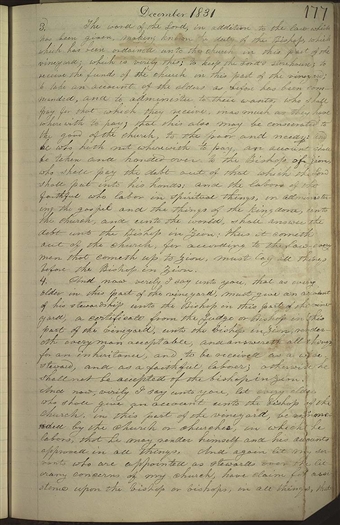 December 1831
177
3. The word of the Lord, in addition to the law which
has been given, making known the duty of the bishop, which
has been ordained unto the church in this part of the
vineyard; which is verily this; to keep the Lord's storehouse; to
receive the funds of the church in this part of the vineyard;
to take an account of the elders as before has been com-
manded, and to administer to their wants, who shall
pay for that which they receive, inasmuch as they have
wherewith to pay; that this also may be consecrated to
the good of the church, to the poor and needy: and
he who hath not wherewith to pay, an account shall
be taken and handed over to the bishop of Zion,
who shall pay the debt out of that which the Lord
shall put into his hands; and the labors of the
faithful who labor in spiritual things, in administer-
ing the gospel and the things of the kingdom, unto
the church, and unto the world, shall answer the
debt unto the bishop in Zion; thus it cometh
out of the church, for according to the law every
man that cometh up to Zion, must lay all things
before the bishop in Zion.
4. And now verily I say unto you, that as every
elder in this part of the vineyard, must give an account
of his stewardship unto the bishop in this part of the vine-
yard, a certificate from the judge or bishop in this
part of the vineyard, unto the bishop in Zion, render-
eth every man acceptable, and answereth all things
for an inheritance, and to be received as a wise
steward, and as a faithful laborer; otherwise he
shall not be accepted of the bishop in Zion.
And now, verily I say unto you, let every elder
who shall give an account unto the bishop of the
church, in this part of the vineyard, be recomme-
nded by the church or churches, in which he
labors, that he may render himself and his accounts
approved in all things. And again let my ser-
vants who are appointed as stewards over the lit-
erary concerns of my church, have claim for assis-
tance upon the bishop or bishops, in all things, that